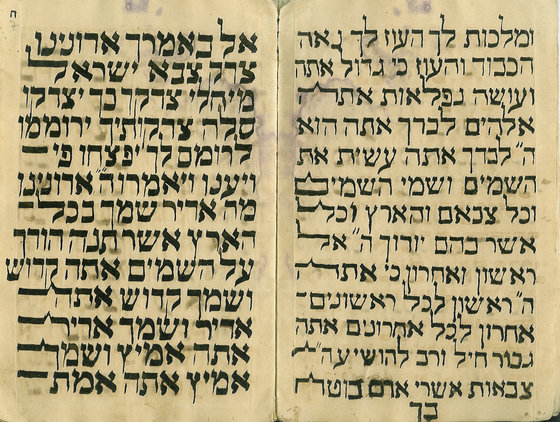 ומלכות לך העוז לך נאה
הכבוד והעוז כי גדול אתה
ועושה נפלאות אתה
אלהים לבדך אתה הוא
ה" לבדך אתה עשית את
השמים ושמי השמים
וכל צבאם והארץ וכל
אשר בהם יודוך ה" אל
ראשון ואחרון כי אתה
ה" ראשון לכל ראשונים
אחרון לכל אחרונים אתה
גבור חיל ורב להושיע ה"
צבאות אשרי אדם בוטח
בך
אל באמרך אדונינו
צדק צבא ישראל
מיחלי צדקך כך יצדקו
סלה צדקותיך ירוממו
לרומם לך יפצחו פי
ויענו ויאמרו ה" אדונינו
מה אדיר שמך בכל
הארץ אשר תנה הודך
על השמים אתה קדוש
ושמך קדוש אתה
אדיר ושמך אדיר
אתה אמיץ ושמך
אמיץ אתה אמת